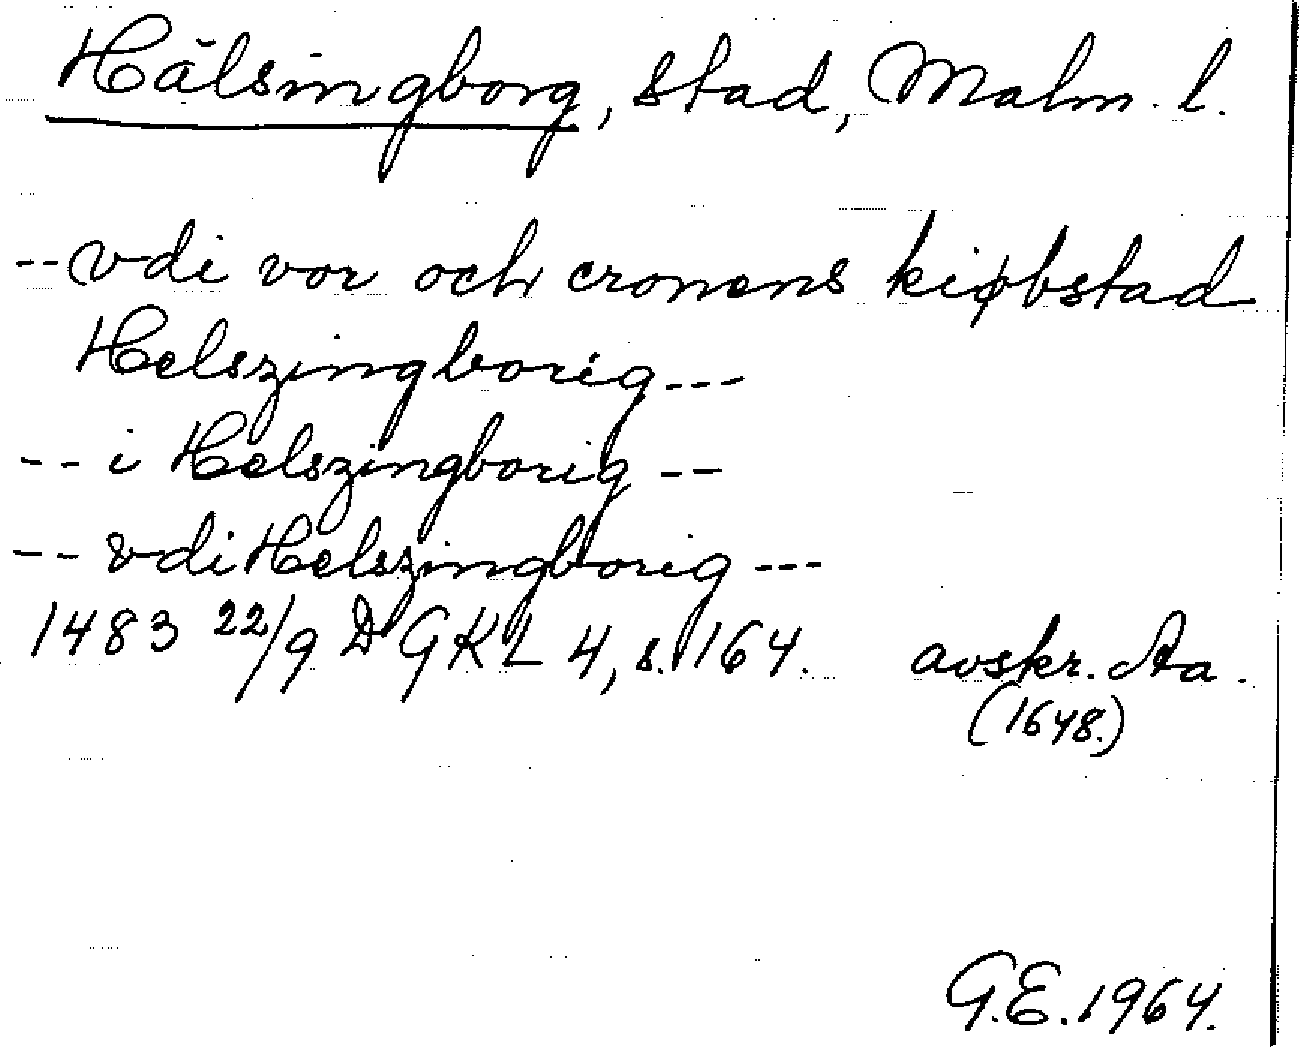 Hälsingborg, stad, Malm. l.
-- vdi vor och cronens kiøbstad
Helszingborig ---
-- i Helszingborig --
-- vdi Helszingborig ---
1483 22/9 DGKL 4, s. 164. avskr. Aa.
(1648.)
G.E. 1964.